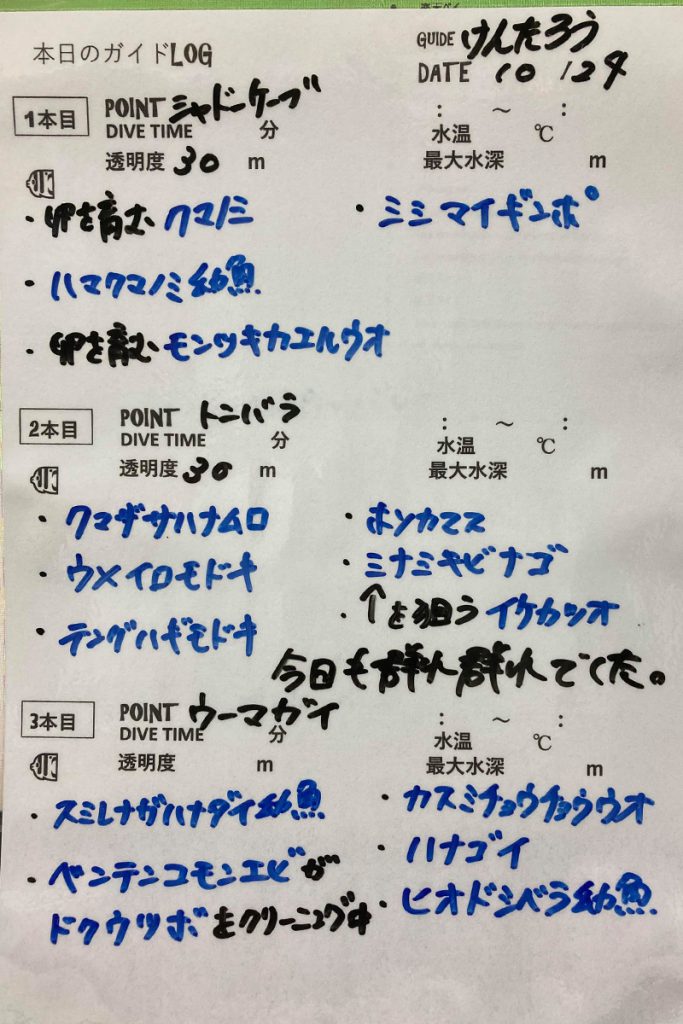 本日のガイドLOG
GUIDE けんたろう
DATE 10/24
1本目 POINT シャドーケーブ : ～ :
DIVE TIME 分 水温 ℃
透明度 30 m 最大水深 m
・卵を育む クマノミ ・ミミマイギンポ
・ハマクマノミ幼魚
・卵を育む モンツキカエルウオ
2本目 POINT トンバラ : ～ :
DIVE TIME 分 水温 ℃
透明度 30 m 最大水深 m
・クマザサハナムロ ・ホソカマス
・ウメイロモドキ ・ミナミキビナゴ
・テングハギモドキ ・↑を狙う イケカツオ
今日も群れ群れでした。
3本目 POINT ウーマガイ : ～ :
DIVE TIME 分 水温 ℃
透明度 m 最大水深 m
・スミレナガハナダイ幼魚 ・カスミチョウチョウウオ
・ベンテンコモンエビが ・ハナゴイ
ドクウツボをクリーニング中 ・ヒオドシベラ幼魚